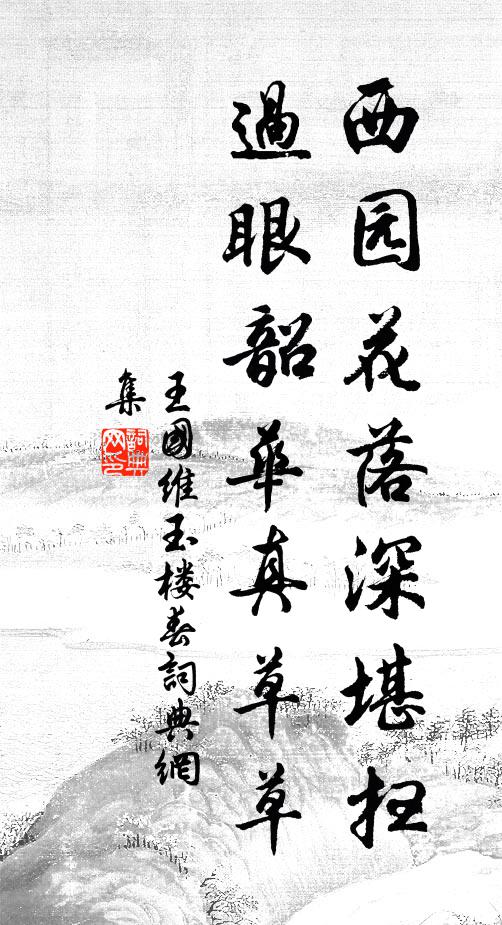 西园花落深堪扫
過眼韶華真草草
王國维玉楼春詞典網
集
詞典网印